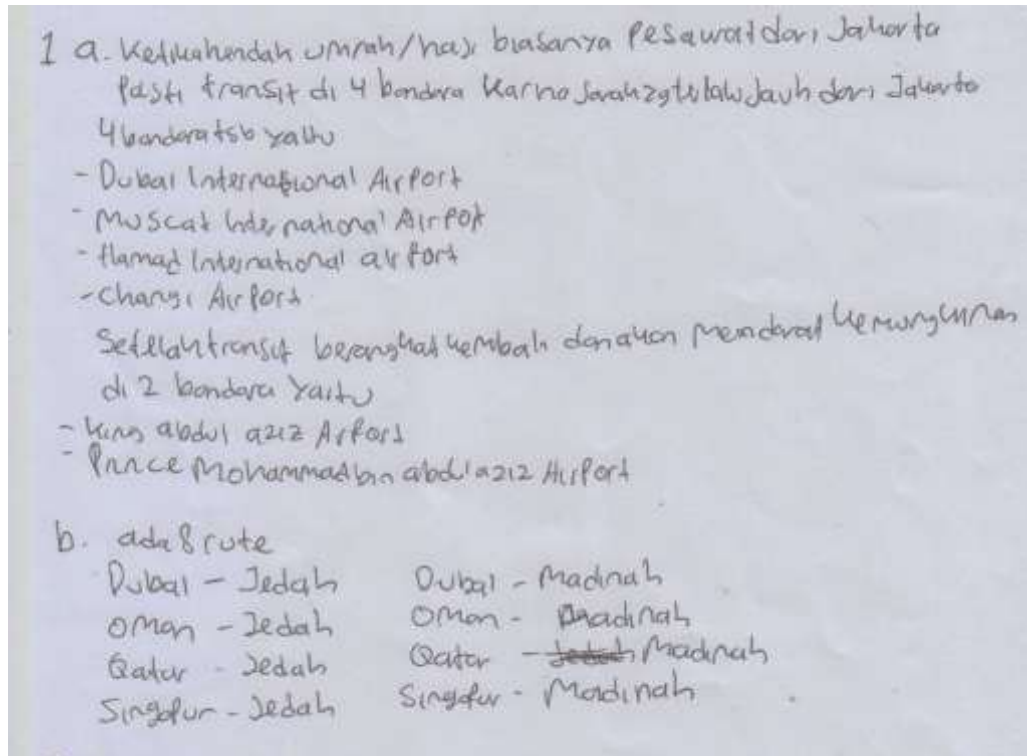 1 a. Ketikahendak umrah/haji biasanya Pesawat dari Jakarta
Pasti transit di 4 bandara karna Jarak yg terlalu Jauh dari Jakarta
4 bandara tsb yaitu
- Dubai International Airport
- Muscat International Airport
- Hamad International airport
- Changi Airport
Setelah transit berangkat kembali dan akan Mendarat kemungkinan
di 2 bandara Yaitu
- King abdul aziz Arport
- Prince Mohammad bin abdul aziz Airport
b. ada 8 rute
Dubai - Jedah Dubai - Madinah
Oman - Jedah Oman - Madinah
Qatar - Jedah Qatar - Jedah Madinah
Singapur - Jedah Singapur - Madinah